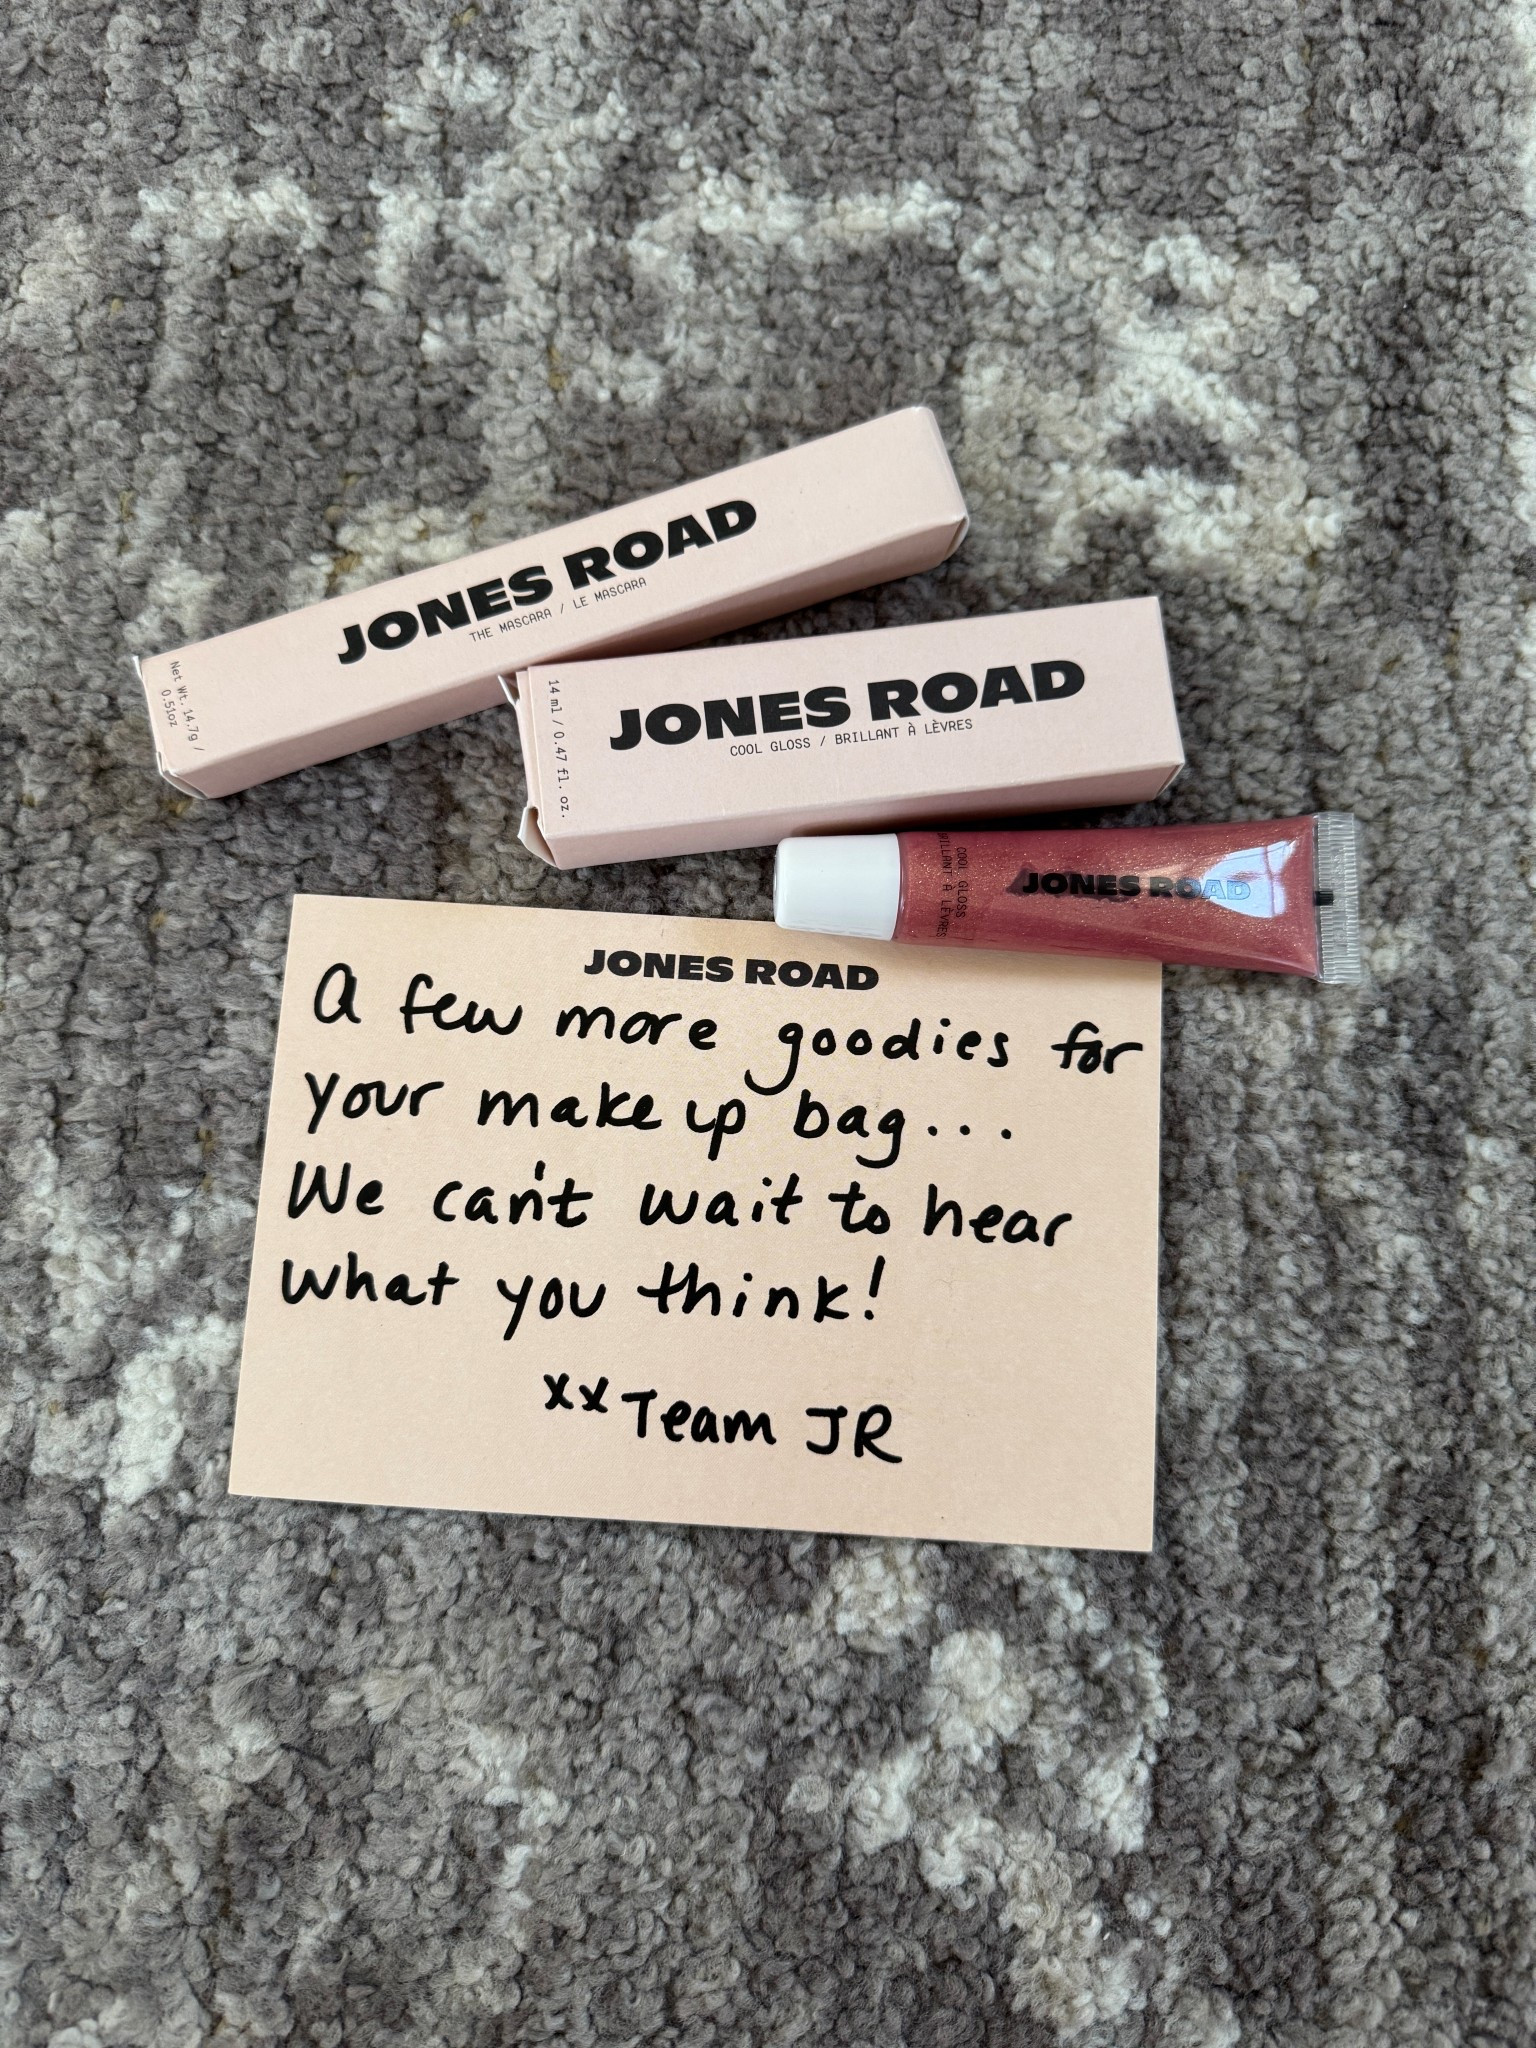 JONES ROAD
THE MASCARA / LE MASCARA
Net Wt. 14.7g /
0.51oz
JONES ROAD
COOL GLOSS / BRILLANT À LÈVRES
14 ml / 0.47 fl. oz.
JONES ROAD
COOL GLOSS
BRILLANT À LÈVRES
JONES ROAD
A few more goodies for
your makeup bag...
We can't wait to hear
what you think!
xx Team JR